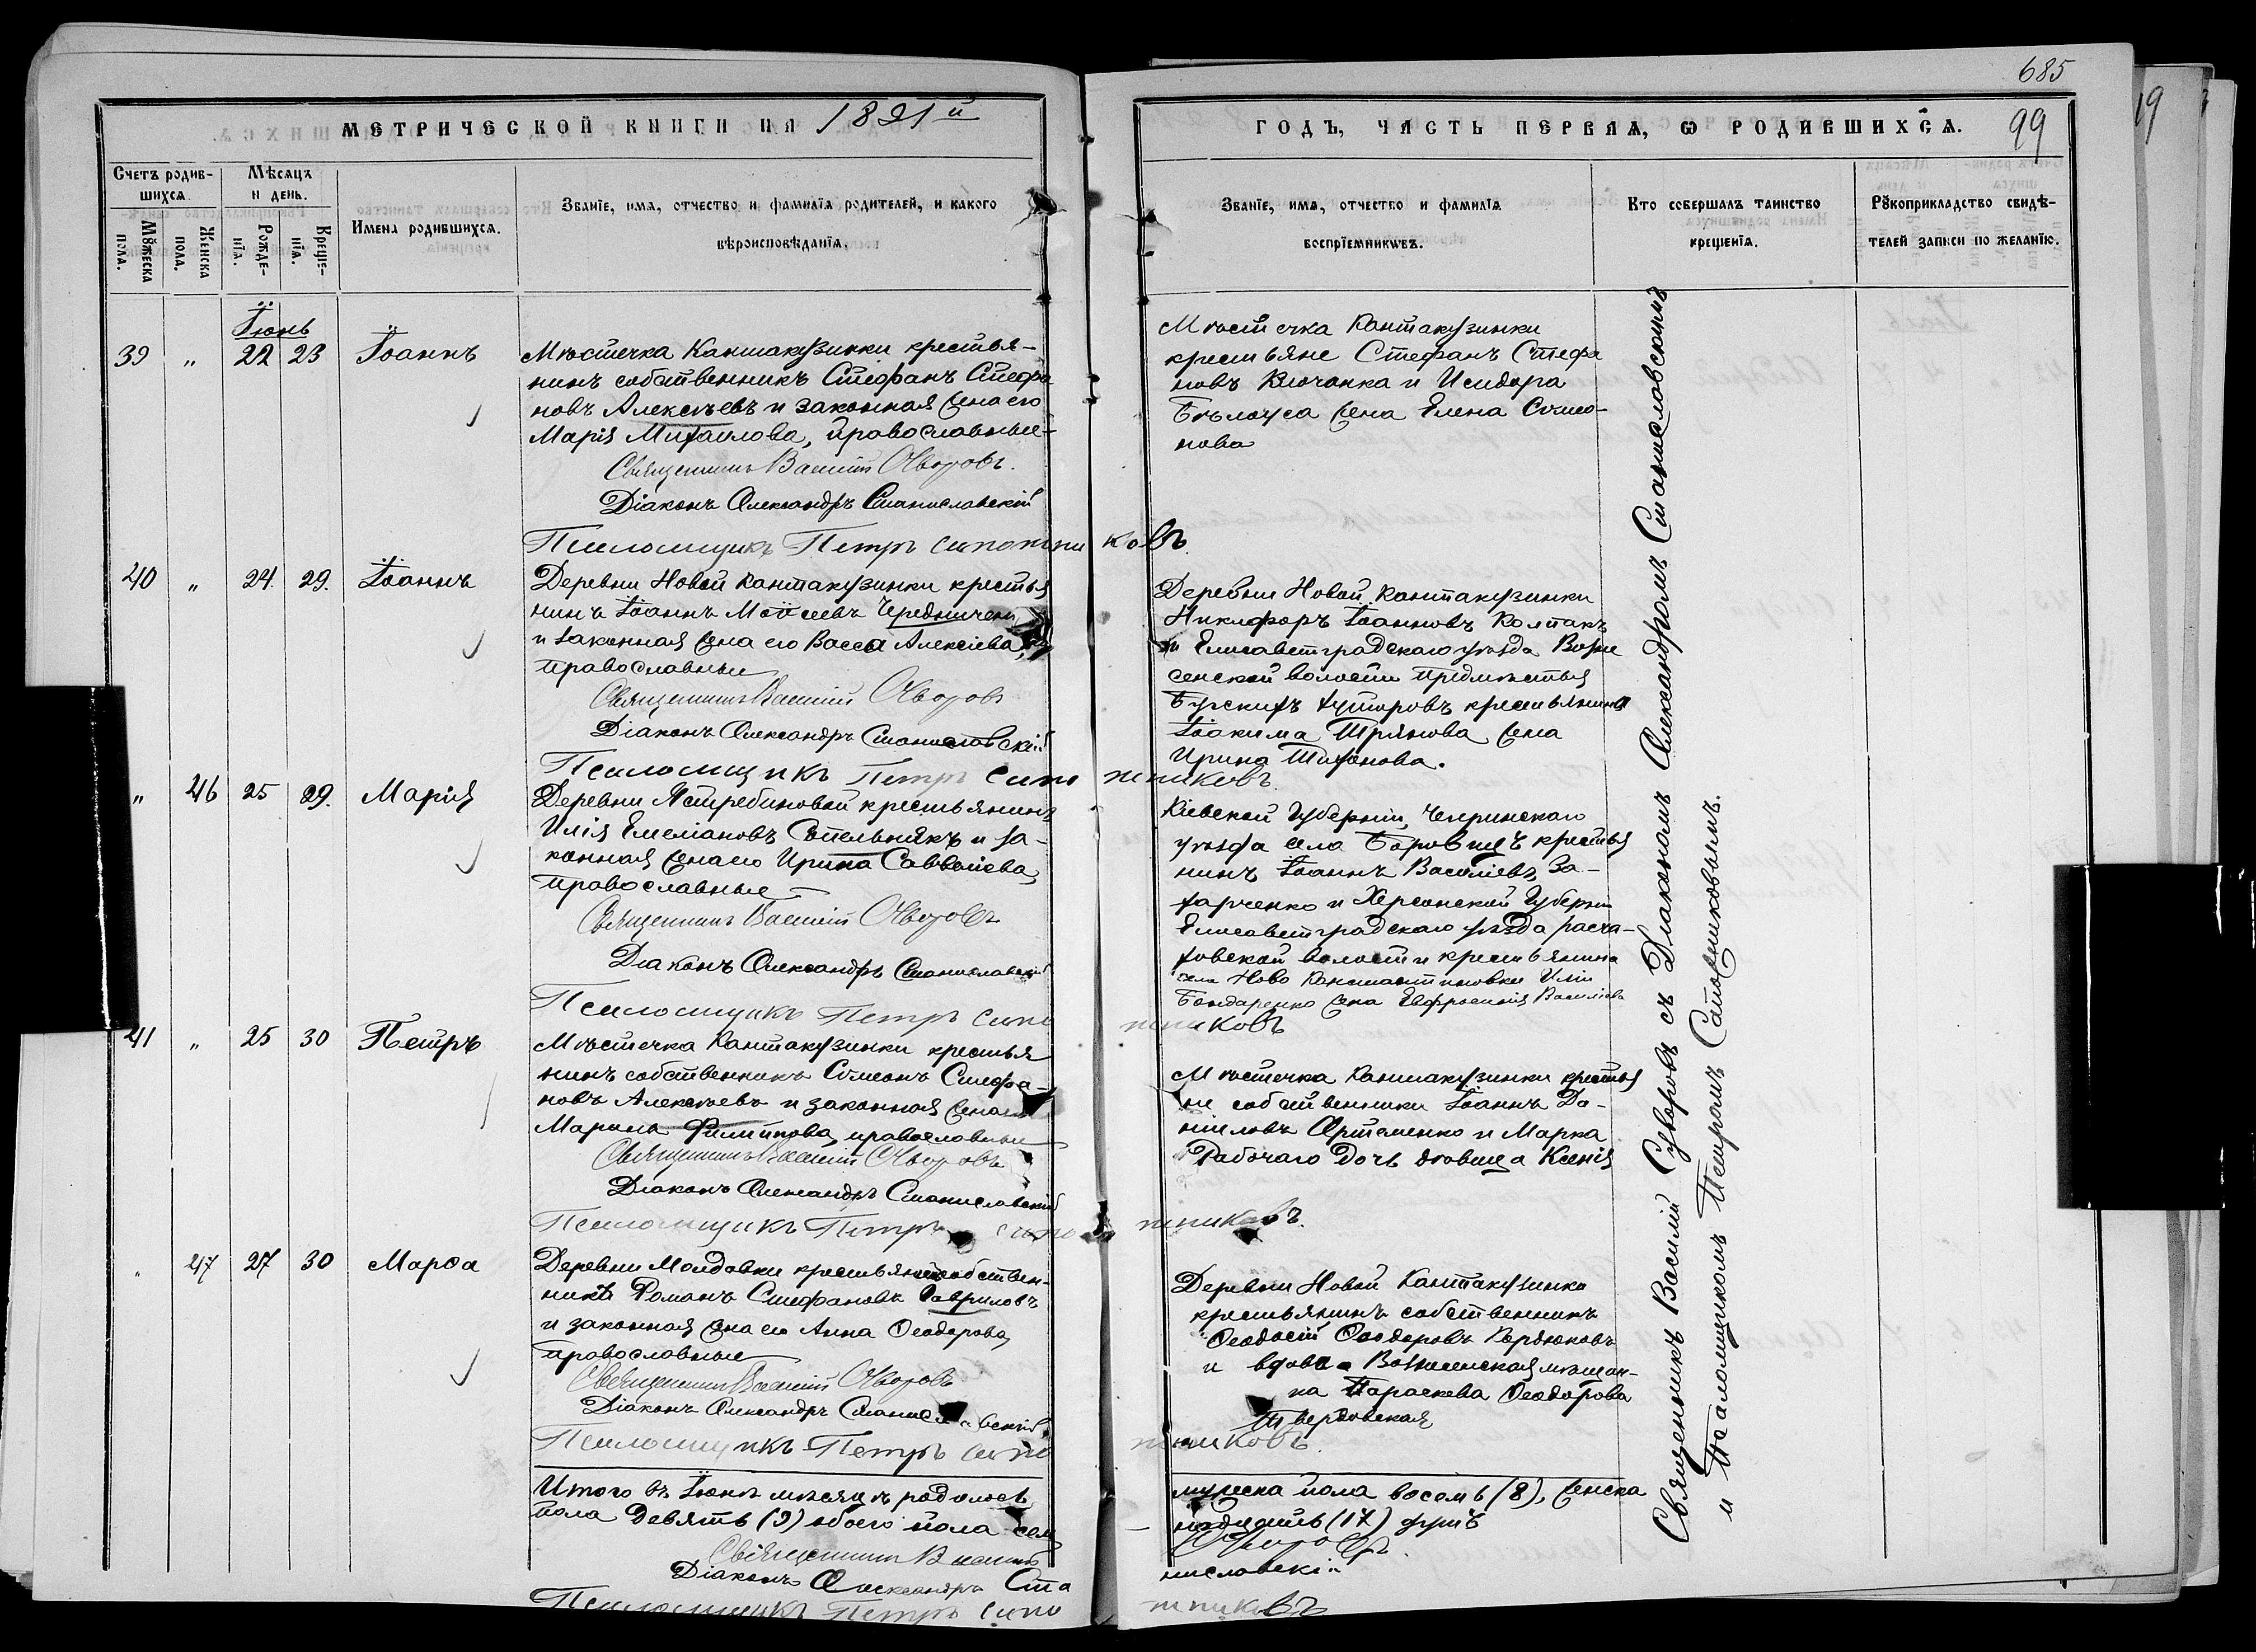 685
99
19
МЕТРИЧЕСКОЙ КНИГИ НА 1891й
ГОДЪ, ЧАСТЬ ПЕРВАЯ, Ѡ РОДИВШИХСѦ.
Счетъ родив-
шихсѧ.
Мꙋжеска
пола.
Женска
пола.
Мѣсяцъ
и день.
Рожде-
нїѧ.
Креще-
нїѧ.
Имена родившихсѧ.
Званїе, имѧ, отчество и фамилїѧ родителей, и какого
вѣроисповѣданїѧ.
Званїе, имѧ, отчество и фамилїѧ
воспрїемникѡвъ.
Кто совершалъ таинство
крещенїѧ.
Рꙋкоприкладство свидѣ-
телей записи по желанїю.
Іюнь
39 " 22 23 Іоаннъ
Мѣстечка Кантакузинки крестья-
нинъ собственникъ Стефанъ Стефа
новъ Алексѣевъ и законная жена его
Марія Михаилова, православные
Священникъ Василій Суворовъ.
Діаконъ Александръ Станиславскій
Псаломщикъ Петръ Сапожниковъ.
Мѣстечка Кантакузинки
крестьяне Стефанъ Стефа
новъ Клочанка и Исидора
Бѣлоуса жена Елена Симео-
нова
40 " 24 29. Іоаннъ
Деревни Новой Кантакузинки крестья
нинъ Іоаннъ Моисеевъ Чередничен
и законная жена его Васса Алексіева,
православные
Священникъ Василій Суворовъ
Діаконъ Александръ Станиславскій
Псаломщикъ Петръ Сапожниковъ.
Деревни Новой Кантакузинки
Никифоръ Іоанновъ Колпакъ
и Елисаветградскаго уѣзда Возне
сенской волости предмѣстья
Бугскихъ хуторовъ крестьянина
Іоакима Тріянова жена
Ирина Тихонова.
" 46 25 29. Марія
Деревни Ястребиновой крестьянинъ
Илія Емеліановъ Сопельникъ и за-
конная жена его Ирина Савваліева,
православные
Священникъ Василій Суворовъ
Діаконъ Александръ Станиславскій
Псаломщикъ Петръ Сапожниковъ
Кіевской Губерніи, Чигринскаго
уѣзда села Боровицъ крестья
нинъ Іоаннъ Василіевъ За-
харченко и Херсонской Губерніи
Елисаветградскаго уѣзда
волости крестьянина
села Ново Константиновки Иліи
Бондаренко жена Евфросинія Василіева
41 " 25 30 Петръ
Мѣстечка Кантакузинки крестья
нинъ собственникъ Симеонъ Стефа-
новъ Алексѣевъ и законная жена его
Марина Филипова, православные
Священникъ Василій Суворовъ
Діаконъ Александръ Станиславскій
Псаломщикъ Петръ Сапожниковъ.
Мѣстечка Кантакузинки крестья
не собственники Іоаннъ Да-
ніиловъ Артеменко и Марка
Рабочаго дочь дѣвица Ксенія
" 47 27 30 Марѳа
Деревни Молдавки крестьянинъ собствен-
никъ Романъ Стефановъ Гавриловъ
и законная жена его Анна Ѳеодорова,
православные
Священникъ Василій Суворовъ
Діаконъ Александръ Станиславскій.
Псаломщикъ Петръ Сапожниковъ.
Деревни Новой Кантакузинки
крестьянинъ собственникъ
Ѳеодосій Ѳеодоровъ Кердюковъ
и вдова Вознесенская мѣщан-
ка Параскева Ѳеодорова
Твердовская
Итого въ Іюнѣ мѣсяцѣ родилось мужеска пола восемь (8), женска
пола девять (9) обоего пола семнадцать (17) душъ
Священникъ Василій Суворовъ.
Діаконъ Александръ Станиславскій
Псаломщикъ Петръ Сапожниковъ
Священникъ Василій Суворовъ съ Діакономъ Александромъ Станиславскимъ
и Псаломщикомъ Петромъ Сапожниковымъ.